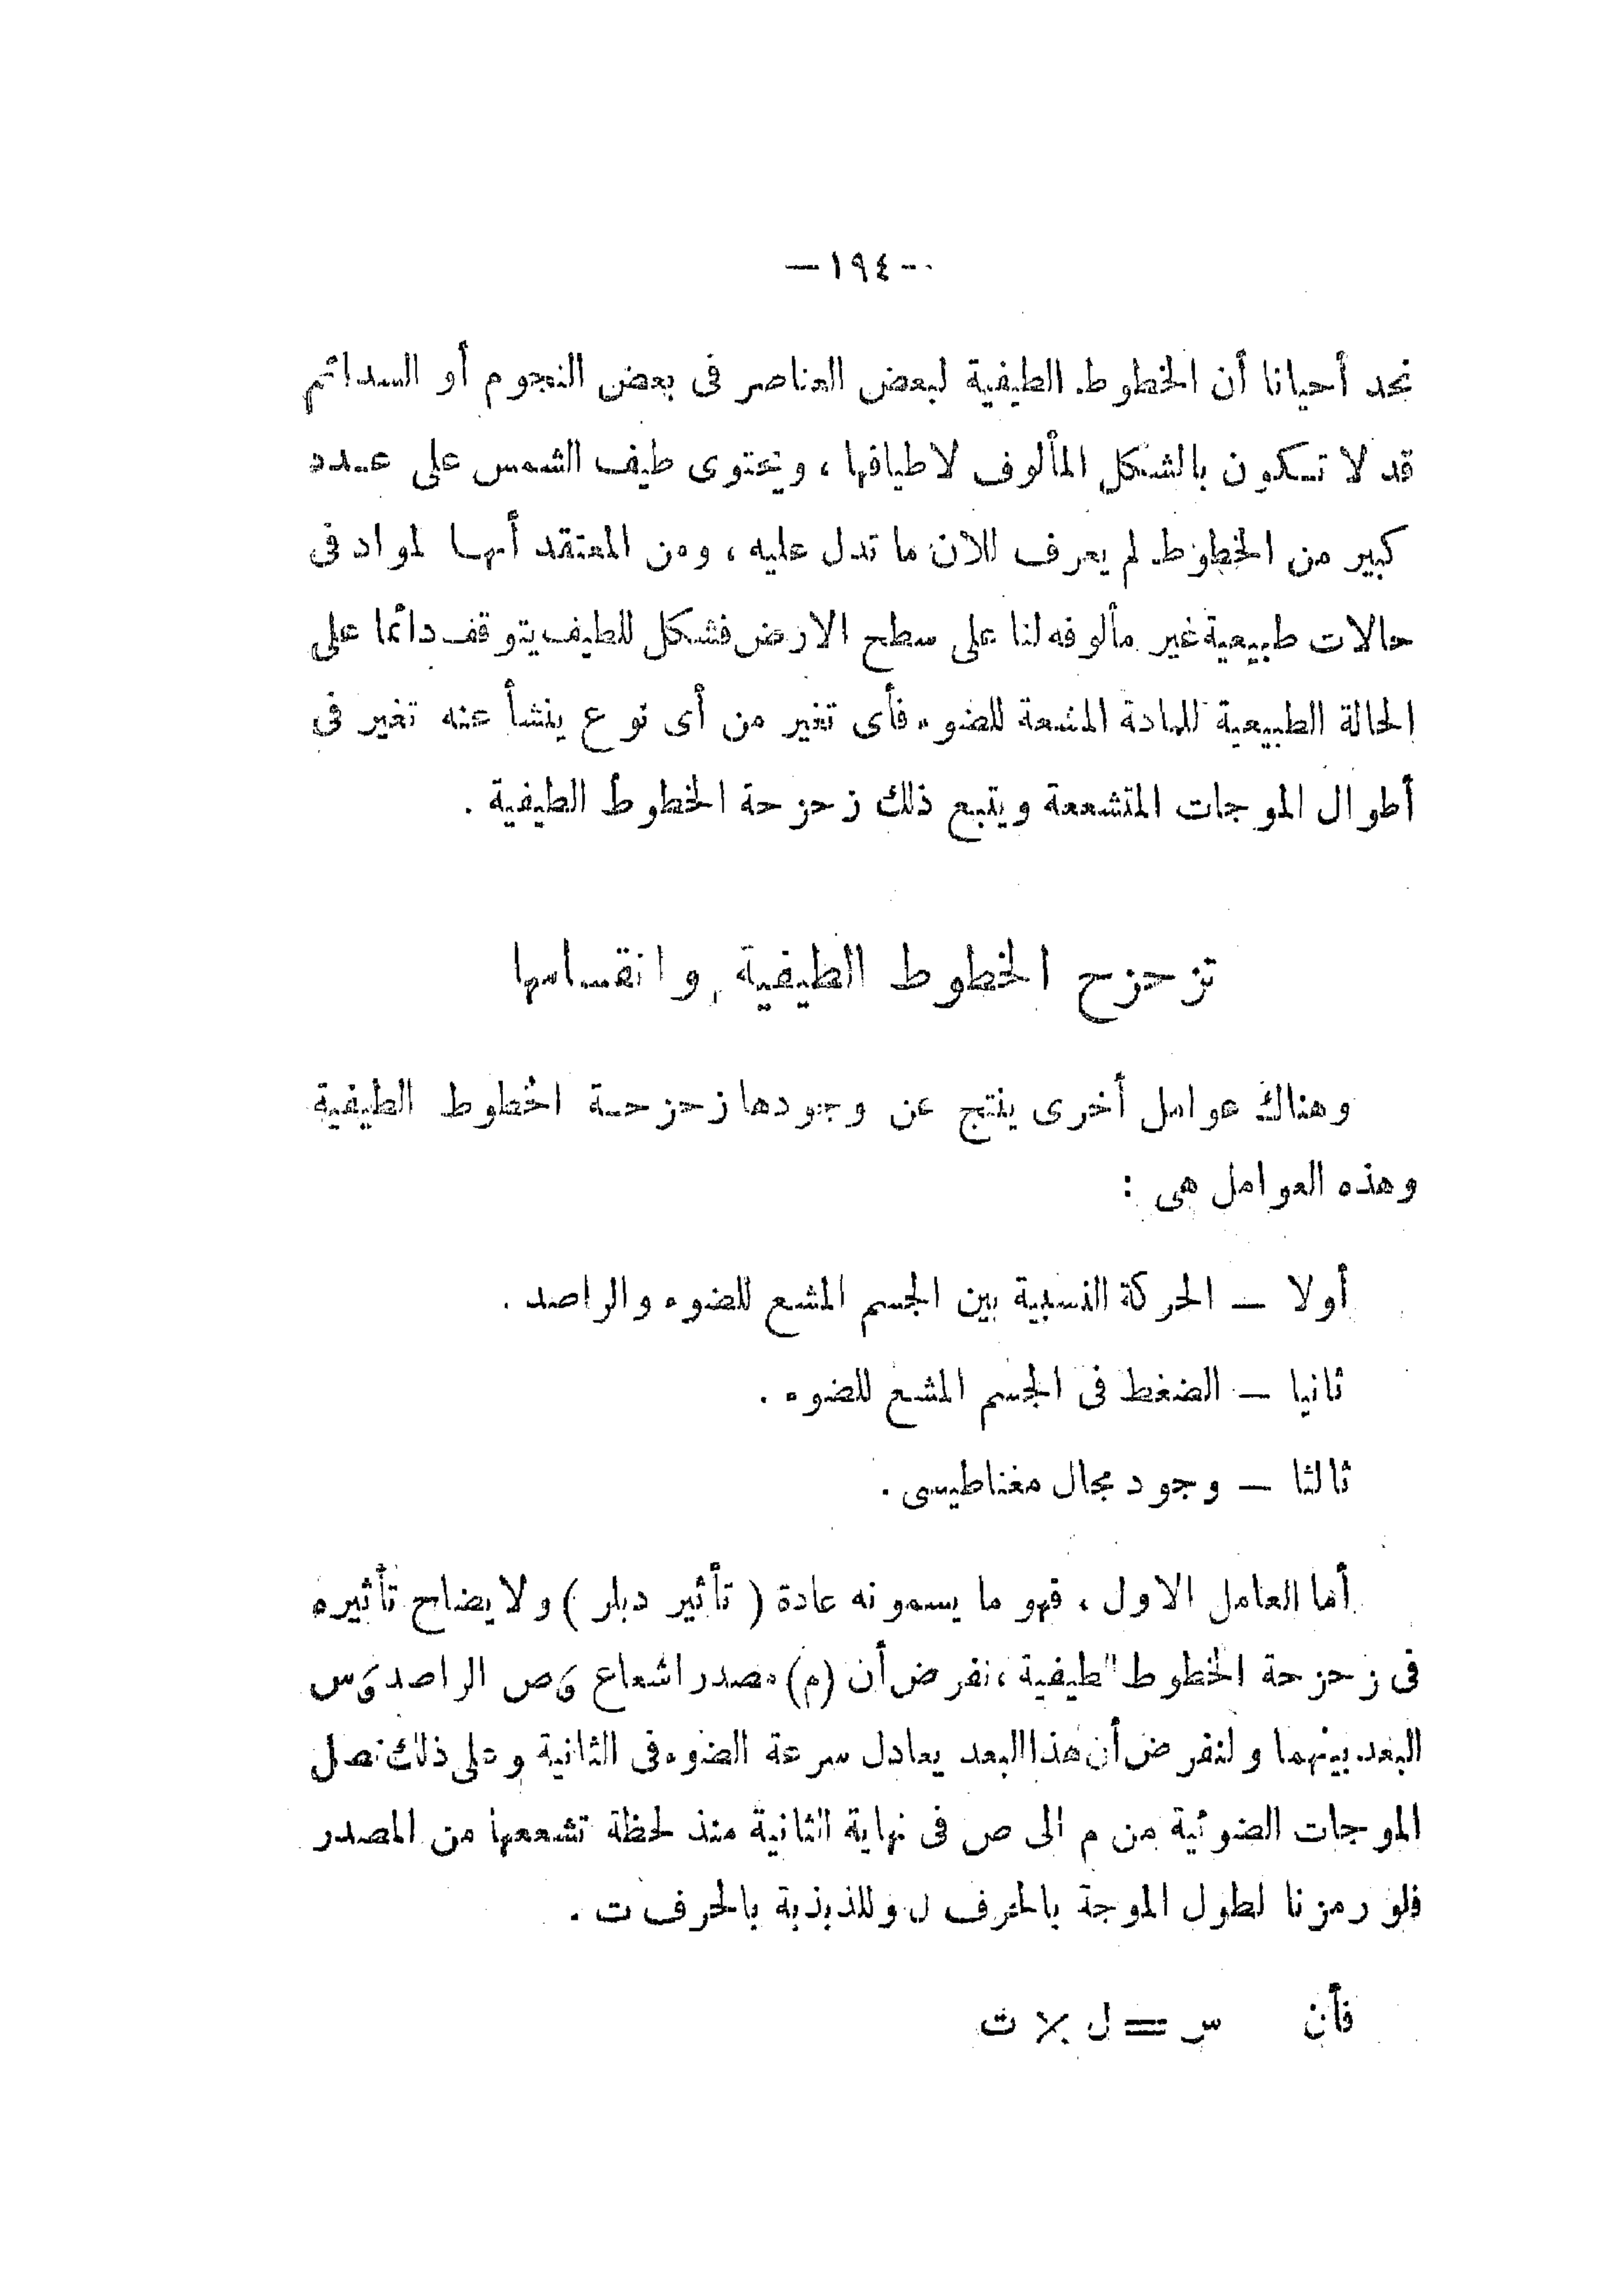 — ١٩٤ —
نجد أحيانا أن الخطوط الطيفية لبعض العناصر فى بعض النجوم أو السدائم
قد لا تكون بالشكل المألوف لاطيافها ، ويحتوى طيف الشمس على عدد
كبير من الخطوط لم يعرف للان ما تدل عليه ، ومن المعتقد أنها لمواد فى
حالات طبيعية غير مألوفه لنا على سطح الارض فشكل للطيف يتوقف دائما على
الحالة الطبيعية للمادة المشعة للضوء فأى تغير من أى نوع ينشأ عنه تغير فى
أطوال الموجات المتشععة ويتبع ذلك زحزحة الخطوط الطيفية .
تزحزح الخطوط الطيفية وانقسامها
وهناك عوامل أخرى ينتج عن وجودها زحزحة الخطوط الطيفية
وهذه العوامل هى :
أولا — الحركة النسبية بين الجسم المشع للضوء والراصد .
ثانيا — الضغط فى الجسم المشع للضوء .
ثالثا — وجود مجال مغناطيسى .
أما العامل الاول ، فهو ما يسمونه عادة ( تأثير دبلر ) ولايضاح تأثيره
فى زحزحة الخطوط الطيفية ، نفرض أن (م) مصدر اشعاع ى ص الراصد ى س
البعد بينهما ولنفرض أن هذا البعد يعادل سرعة الضوء فى الثانية وعلى ذلك تصل
الموجات الضوئية من م الى ص فى نهاية الثانية منذ لحظة تشععها من المصدر
فلو رمزنا لطول الموجة بالحرف ل وللذبذبة بالحرف ت .
فأن س = ل × ت